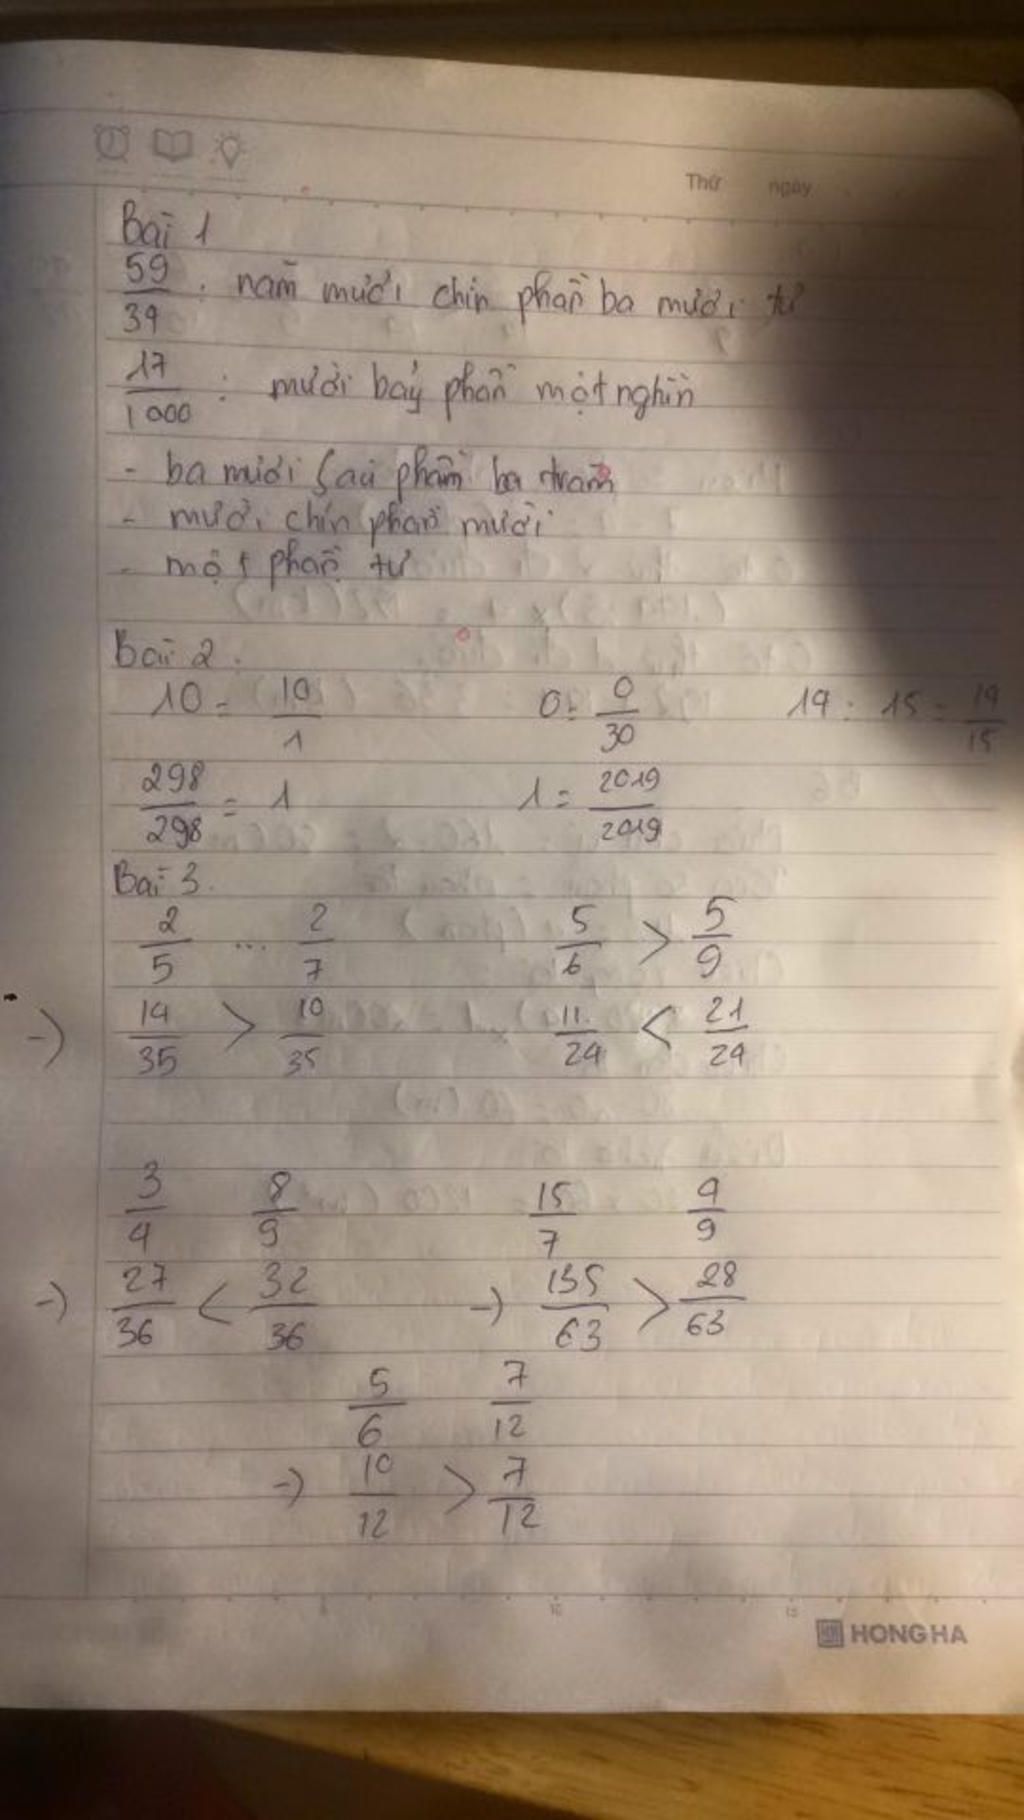 Thứ ngày
Bài 1
59/34 : năm mươi chín phần ba mươi tư
17/1000 : mười bảy phần một nghìn
- ba mươi sáu phần ba trăm
- mười chín phần mười
- một phần tư
Bài 2.
10 = 10/1 0 = 0/30 19 : 15 = 19/15
298/298 = 1 1 = 2019/2019
Bài 3.
2/5 ... 2/7 5/6 > 5/9
-) 14/35 > 10/35 11/24 < 21/24
3/4 8/9 15/7 4/9
-) 27/36 < 32/36 -) 135/63 > 28/63
5/6 7/12
-) 10/12 > 7/12
HONG HA